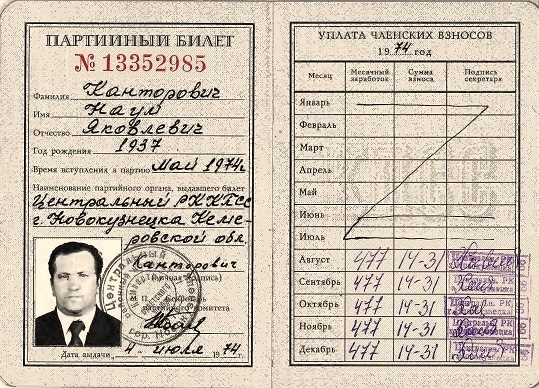 ПАРТИЙНЫЙ БИЛЕТ
№ 13352985
Фамилия Канторович
Имя Наум
Отчество Яковлевич
Год рождения 1937
Время вступления в партию Май 1974г
Наименование партийного органа, выдавшего билет
Центральный РК КПСС
г. Новокузнецка Кеме-
ровской обл.
Канторович
(личная подпись)
Дата выдачи „4" июля 1974г.
УПЛАТА ЧЛЕНСКИХ ВЗНОСОВ
1974 год
Месяц Месячный заработок Сумма взноса Подпись секретаря
Январь
Февраль
Март
Апрель
Май
Июнь
Июль
Август 477 14-31
Сентябрь 477 14-31
Октябрь 477 14-31
Ноябрь 477 14-31
Декабрь 477 14-31